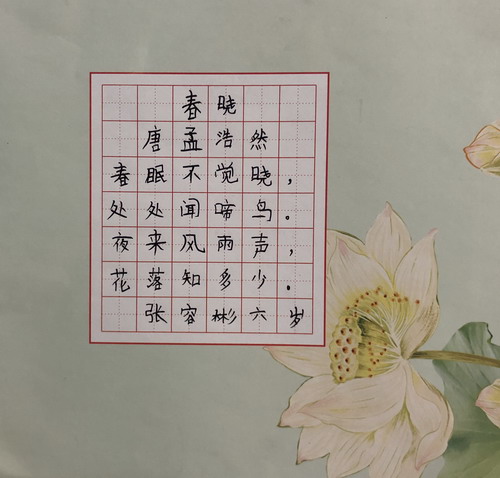 春晓
唐孟浩然
春眠不觉晓，
处处闻啼鸟。
夜来风雨声，
花落知多少。
张容彬六岁